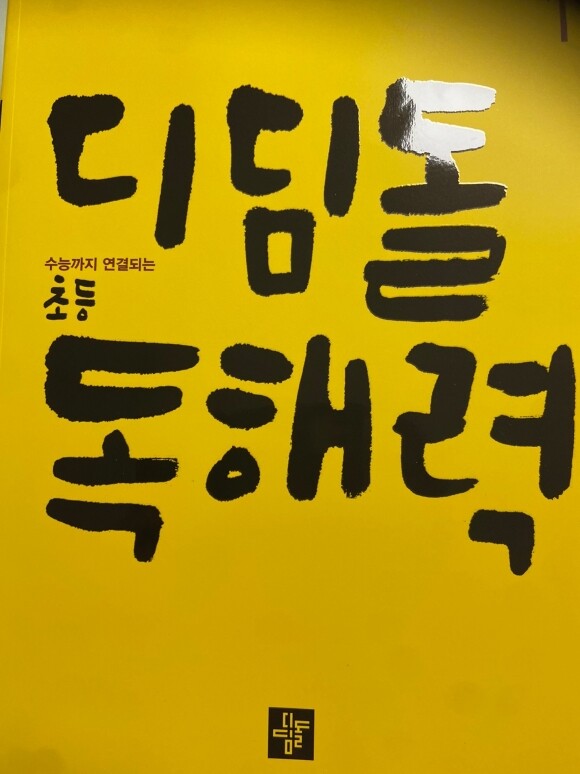 디딤돌
수능까지 연결되는
초등
독해력
디딤돌